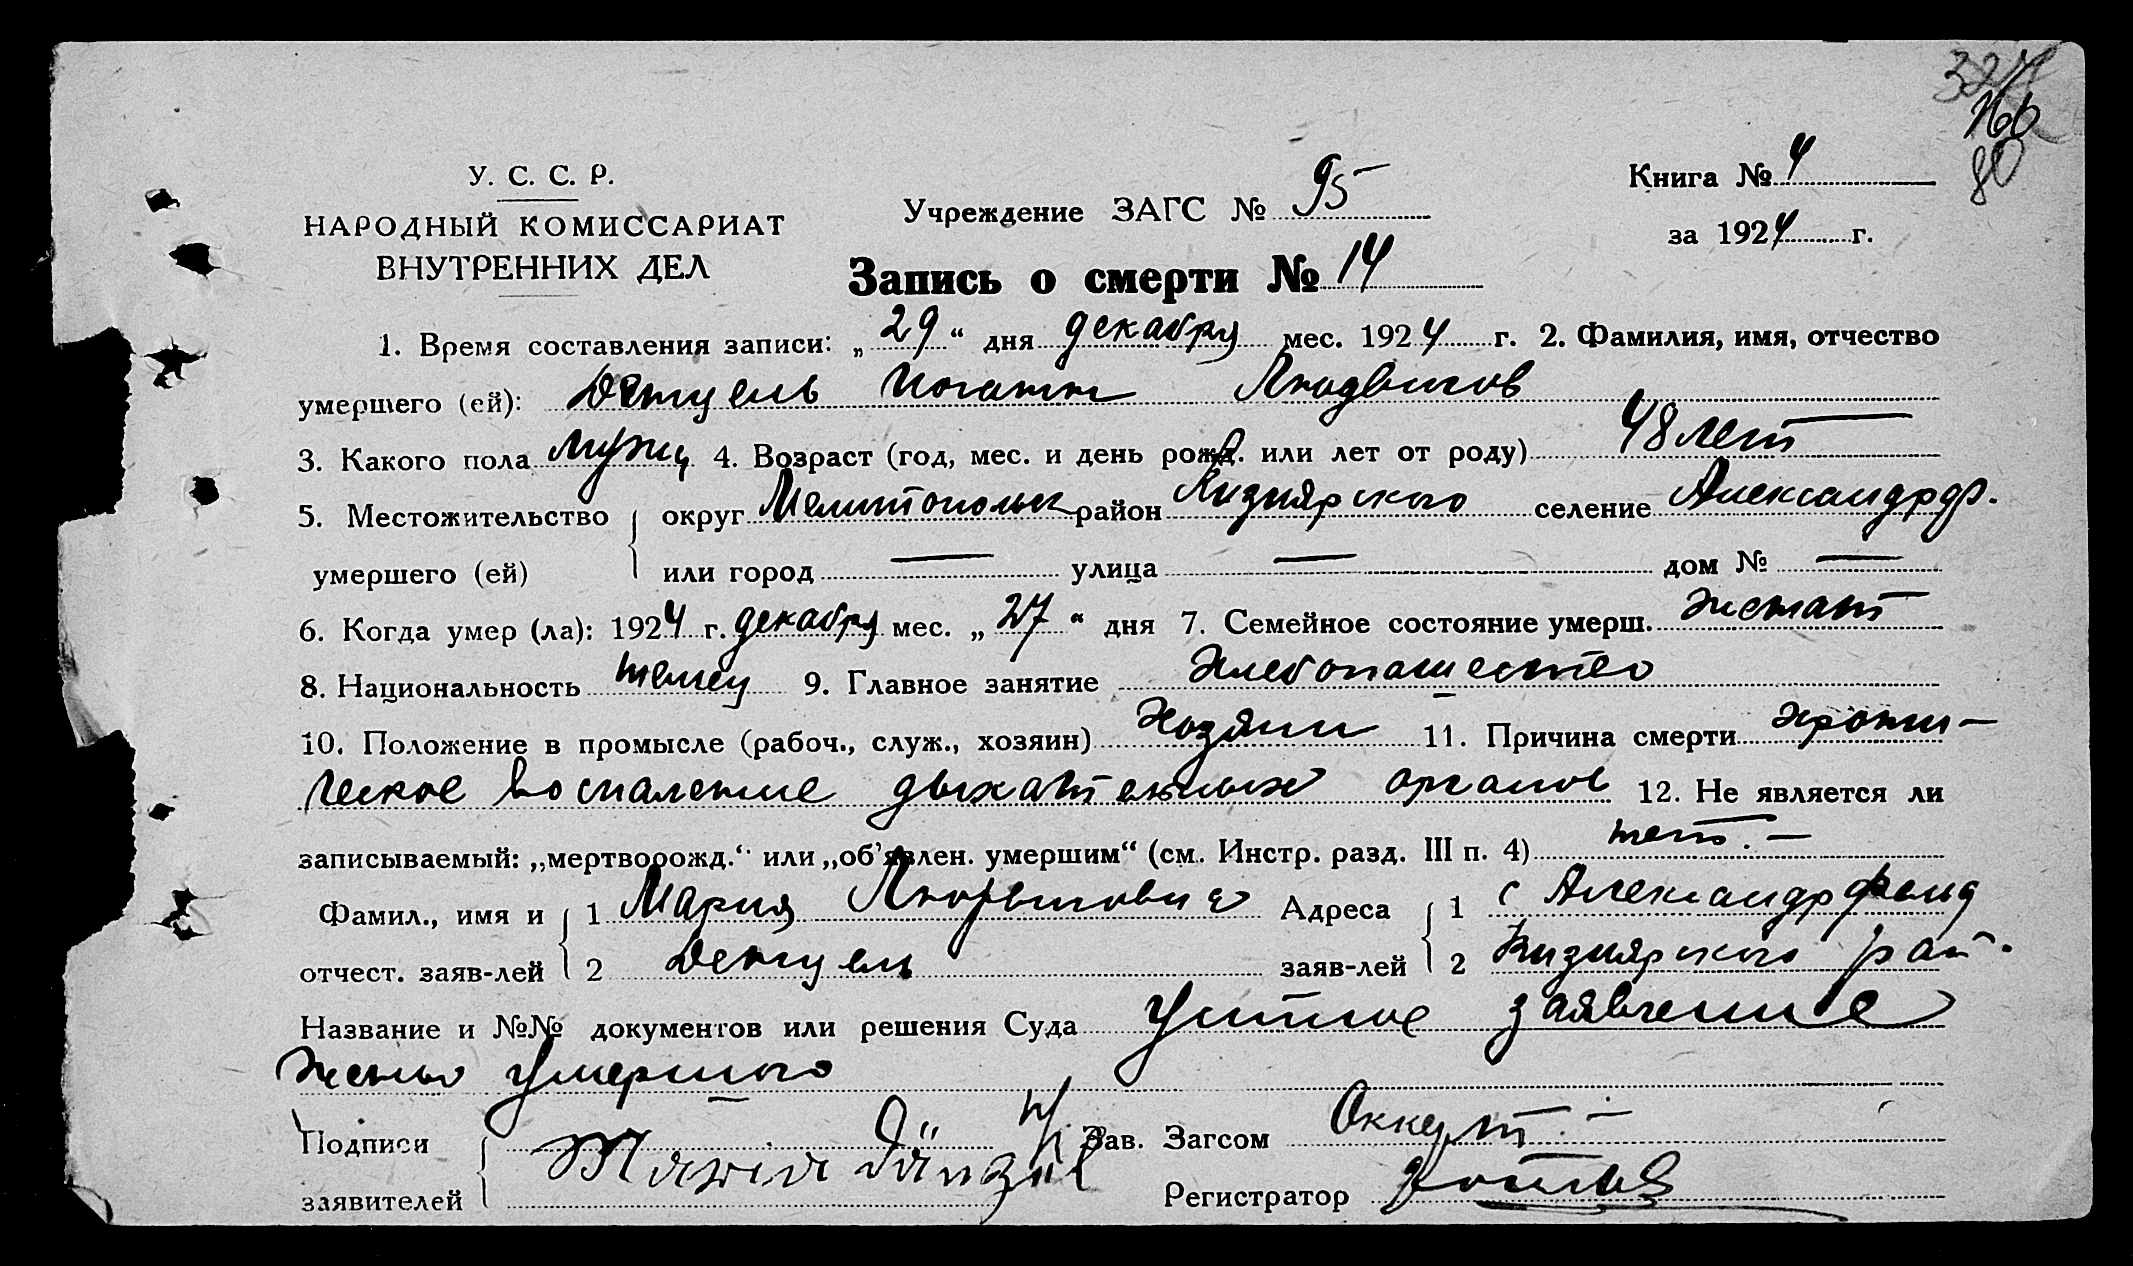 166
80
У. С. С. Р.
НАРОДНЫЙ КОМИССАРИАТ
ВНУТРЕННИХ ДЕЛ
Учреждение ЗАГС № 95
Книга № 4
за 1924 г.
Запись о смерти № 14
1. Время составления записи: „29“ дня декабря мес. 1924 г. 2. Фамилия, имя, отчество
умершего (ей): Денцель Иоганн Людвигов
3. Какого пола мужч 4. Возраст (год, мес. и день рожд. или лет от роду) 48 лет
5. Местожительство округ Мелитопольск район Кизиярского селение Александрф.
умершего (ей) или город — улица — дом № —
6. Когда умер (ла): 1924 г. декабря мес. „27“ дня 7. Семейное состояние умерш. женат
8. Национальность немец 9. Главное занятие хлебопашество
10. Положение в промысле (рабоч., служ., хозяин) хозяин 11. Причина смерти хрони-
ческое воспаление дыхательных органов 12. Не является ли
записываемый: „мертворожд.“ или „об'явлен. умершим“ (см. Инстр. разд. III п. 4) нет. —
Фамил., имя и 1 Мария Адреса 1 с Александрфельд
отчест. заяв-лей 2 Денцель заяв-лей 2 Кизиярского рай.
Название и №№ документов или решения Суда Устное заявление
жены умершего
Подписи Зав. Загсом
заявителей Maria Dänzel Регистратор